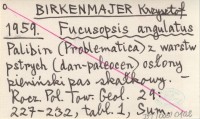 BIRKENMAJER Krzysztof
1959. Fucusopsis angulatus
Palibin (Problematica) z warstw
pstrych (dan-paleocen) osłony
pieniński pas skałkowy. -
Rocz. Pol. Tow. Geol. 29:
227-232, tabl. 1, Sum.